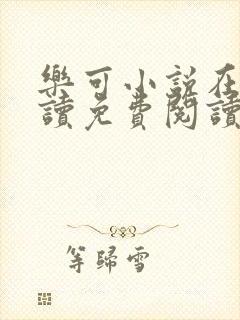 樂可小說在
讀免費閱讀
等歸雪